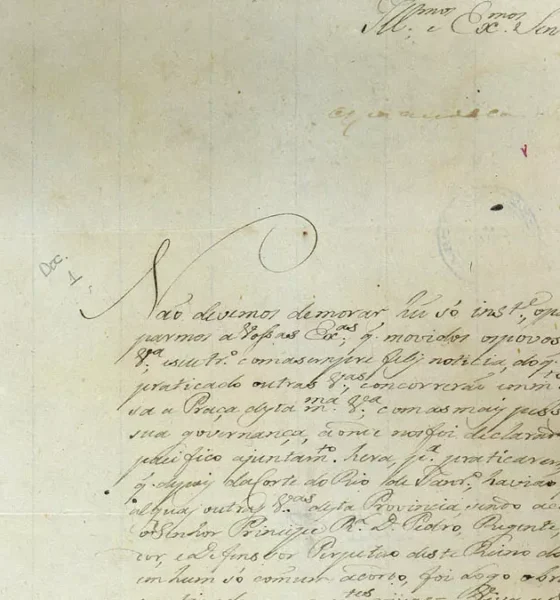 Ill.mos e Ex.mos Sen
Doc.
1
Não devimos demorar hũ só inst.e, o
parmos a Vossas Ex.as, q. movidos os povos
V.a, e seu tr.o com a sempre feliz noticia, do q.
praticado outras V.as, concorrerão
sa a Praça desta m.ma V.a, com as mais
sua governança, aonde nos foi declarar
pacifico ajuntam.to hera, p.a praticarem
q. depois da Corte do Rio de Janr.o, havião
alguas outras V.as desta Provincia, sendo ac
o Senhor Principe R.al D. Pedro, Regente,
tor, e defensor Perpetuo deste Reino do
em hum só comum acordo, foi logo